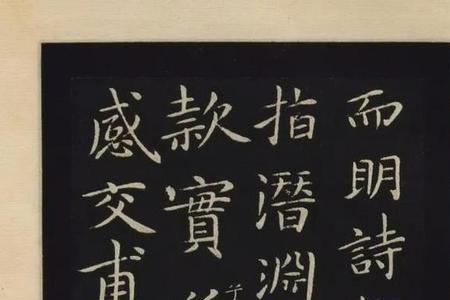 而明詩
指潛淵
款實
感交甫